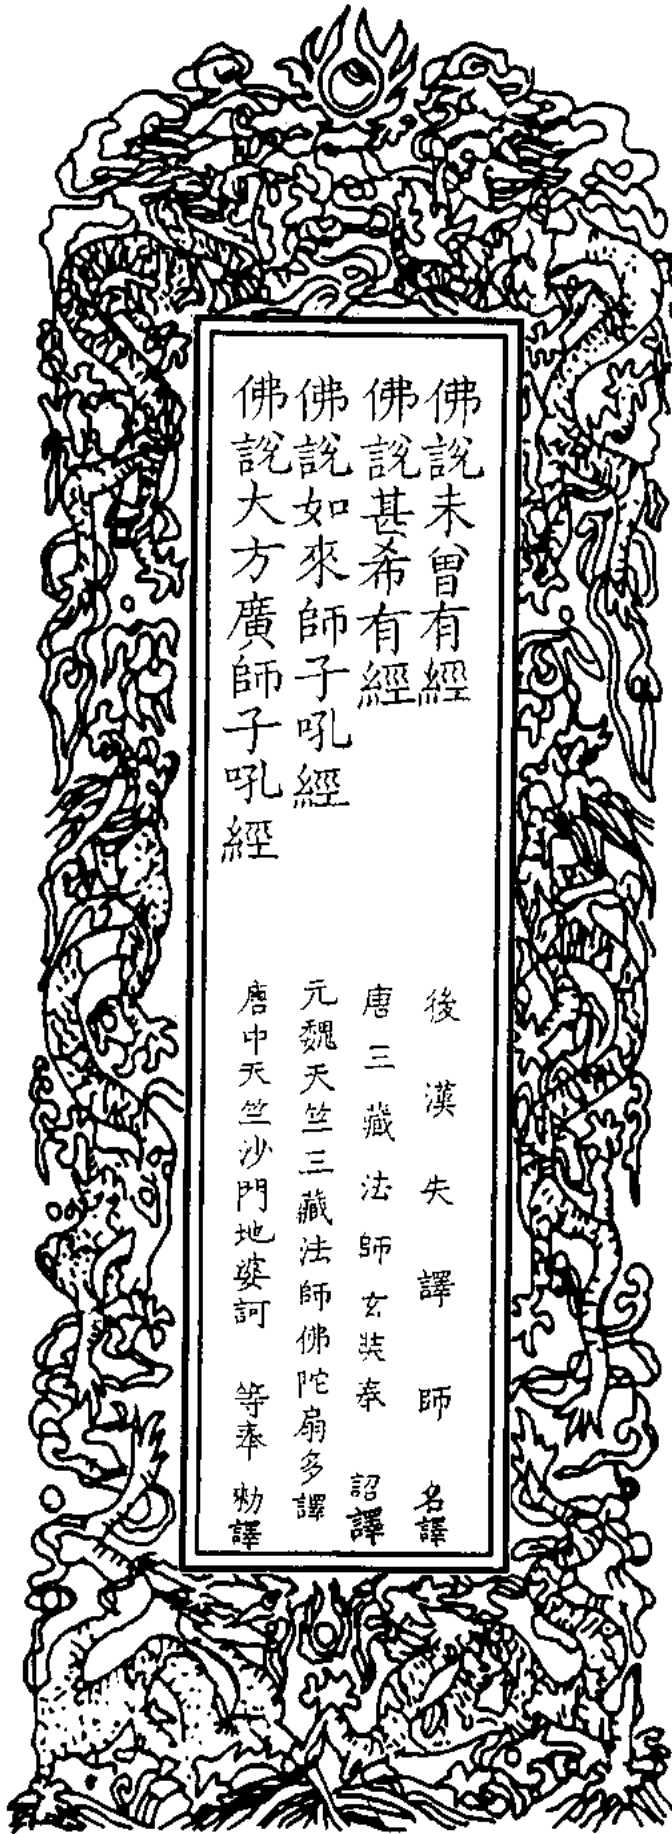 佛說未曾有經 後漢失譯師名譯
佛說甚希有經 唐三藏法師玄奘奉 詔譯
佛說如來師子吼經 元魏天竺三藏法師佛陀扇多譯
佛說大方廣師子吼經 唐中天竺沙門地婆訶 等奉 勑譯